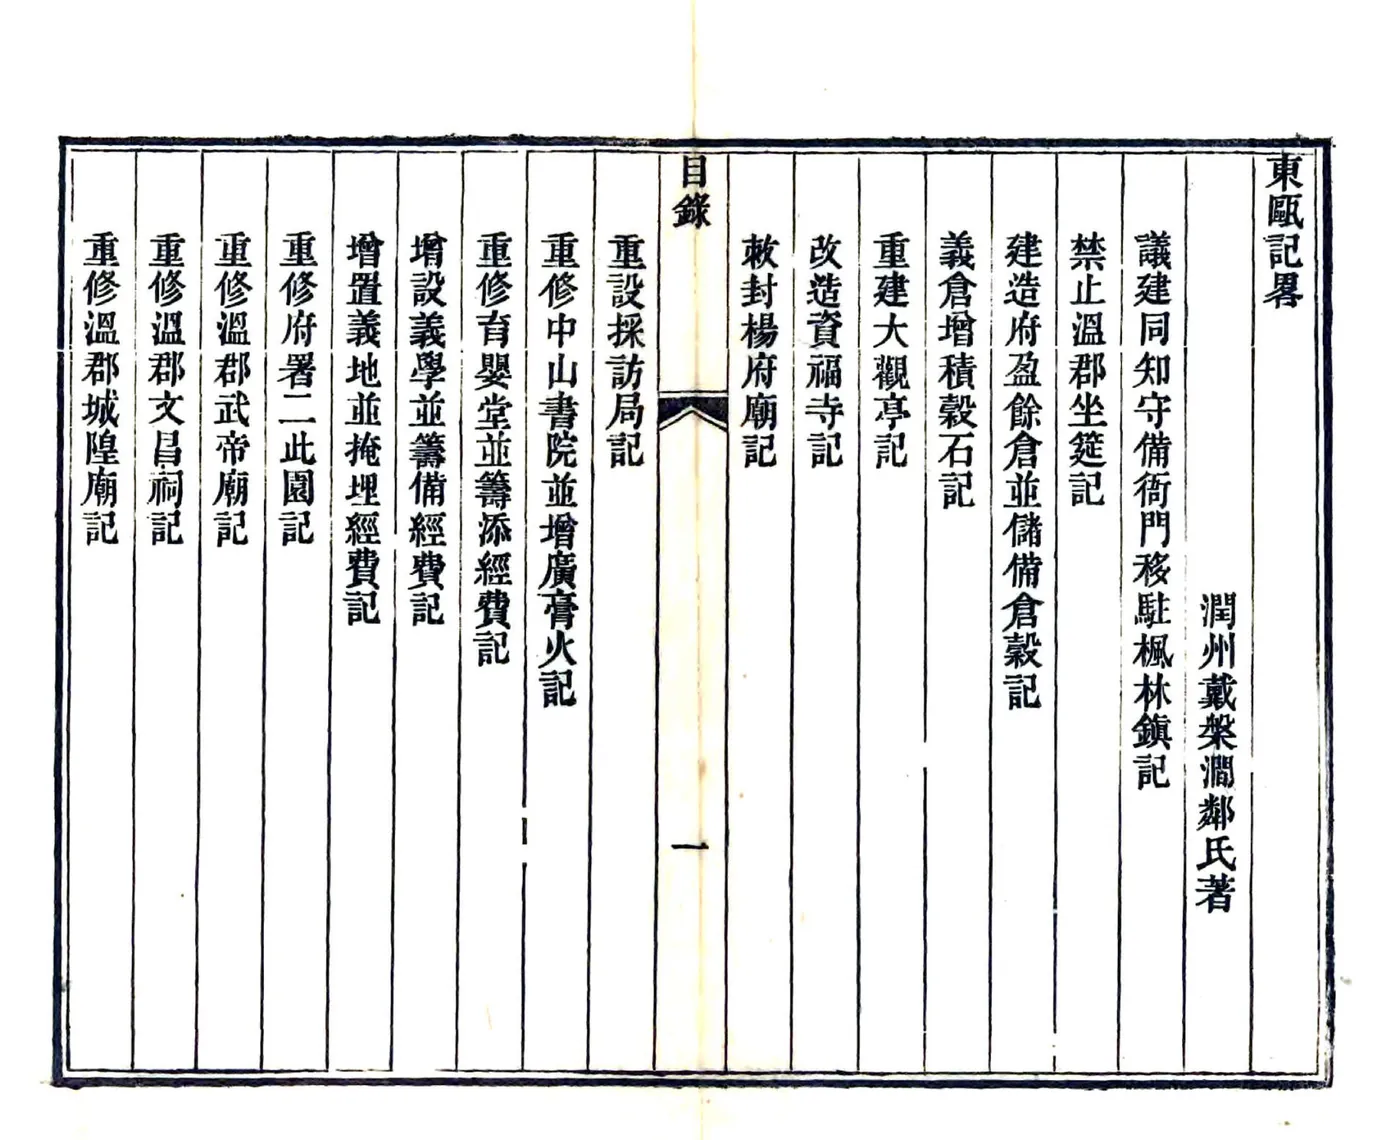 東甌記畧
潤州戴槃澗鄰氏著
議建同知守備衙門移駐楓林鎭記
禁止溫郡坐筵記
建造府盈餘倉並儲備倉穀記
義倉增積穀石記
重建大觀亭記
改造資福寺記
敕封楊府廟記
目錄
一
重設採訪局記
重修中山書院並增廣膏火記
重修育嬰堂並籌添經費記
增設義學並籌備經費記
增置義地並掩埋經費記
重修府署二此園記
重修溫郡武帝廟記
重修溫郡文昌祠記
重修溫郡城隍廟記